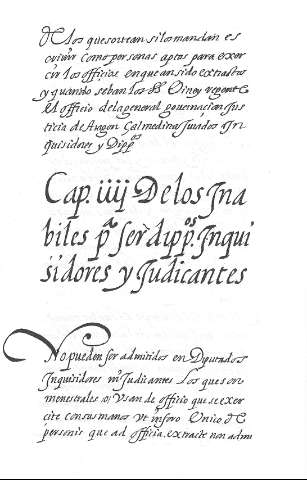 De los que sortean si los mandan es
criuir como personas aptas para exer
cir los officios en que an sido extractos
y quando se ban los SS Virrey regent C
el officio de la general gouernacion Jus
ticia de Aragon Çalmedina Juados Jn
quisidores y Dipp.os
Cap. iiij De los Jna
biles p.a ser dipp.os Jnqui
sidores y Judicantes
No pueden ser admitidos en Diputados
Jnquisidores ni Judicantes Los que son
menestrales o vsan de officio que se exer
cite con sus manos vt in foro Vnico de
personis que ad officia extracte non admi